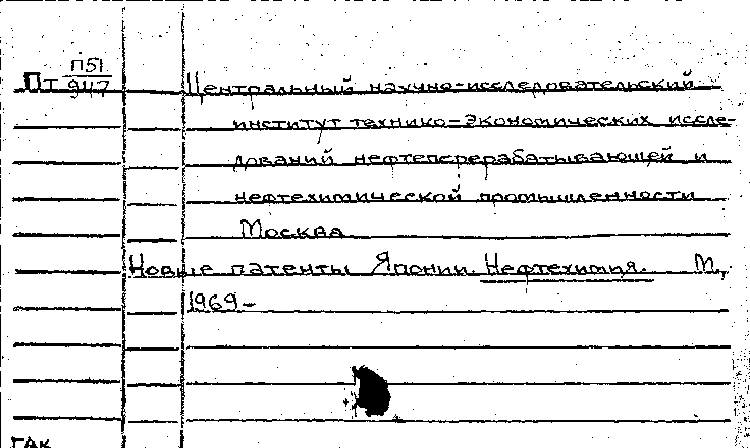 П51
Пт 947 Центральный научно-исследовательский
институт технико-экономических иссле-
дований нефтеперерабатывающей и
нефтехимической промышленности
Москва
Новые патенты Японии. Нефтехимия. М.,
1969-
ГАК